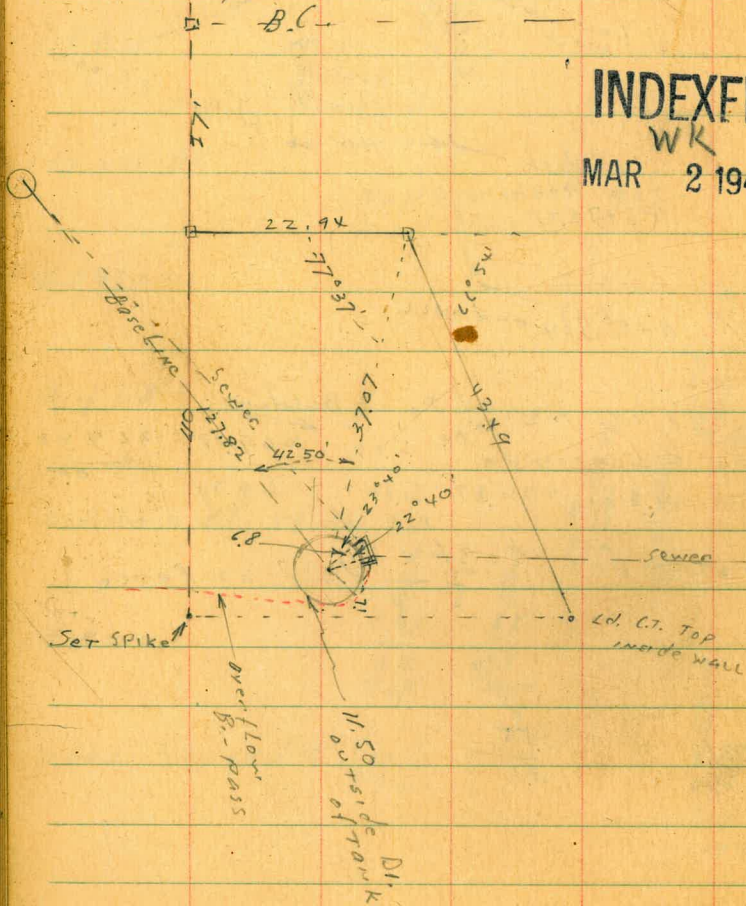 B.C.
INDEXE
WK
MAR 2 194
22.94
77°37'
43.49
Base Line
127.82
Sewer
37.07
42°50'
23°40'
22°40'
6.8
sewer
Set Spike
Ld. C.T. Top
inside wall
overflow
By-pass
11.50
outside Di.
of tank